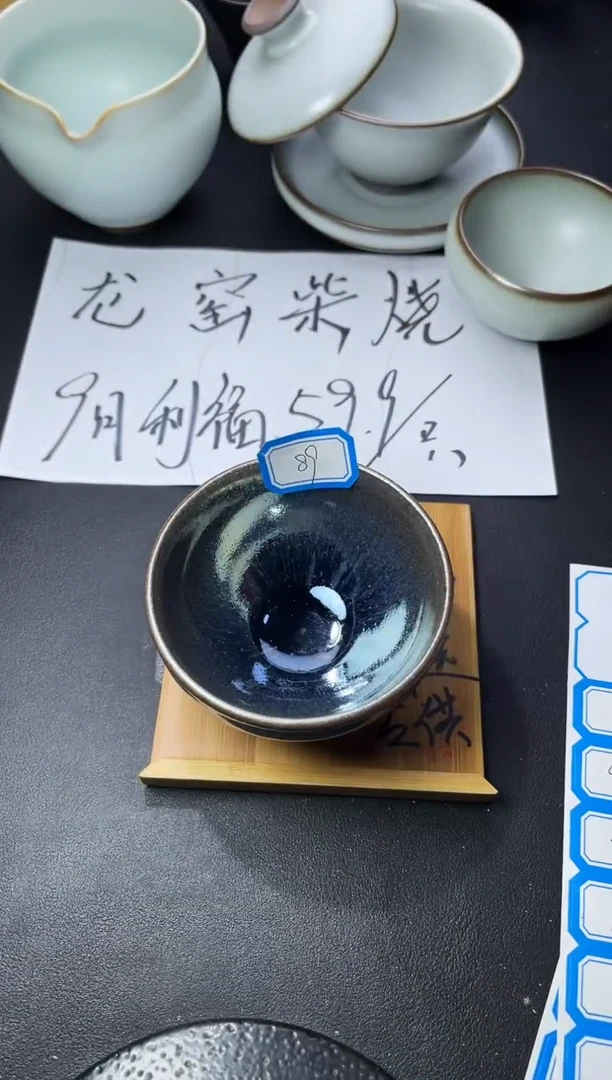 龙窑柴烧
9月利福59.9/只
89
供